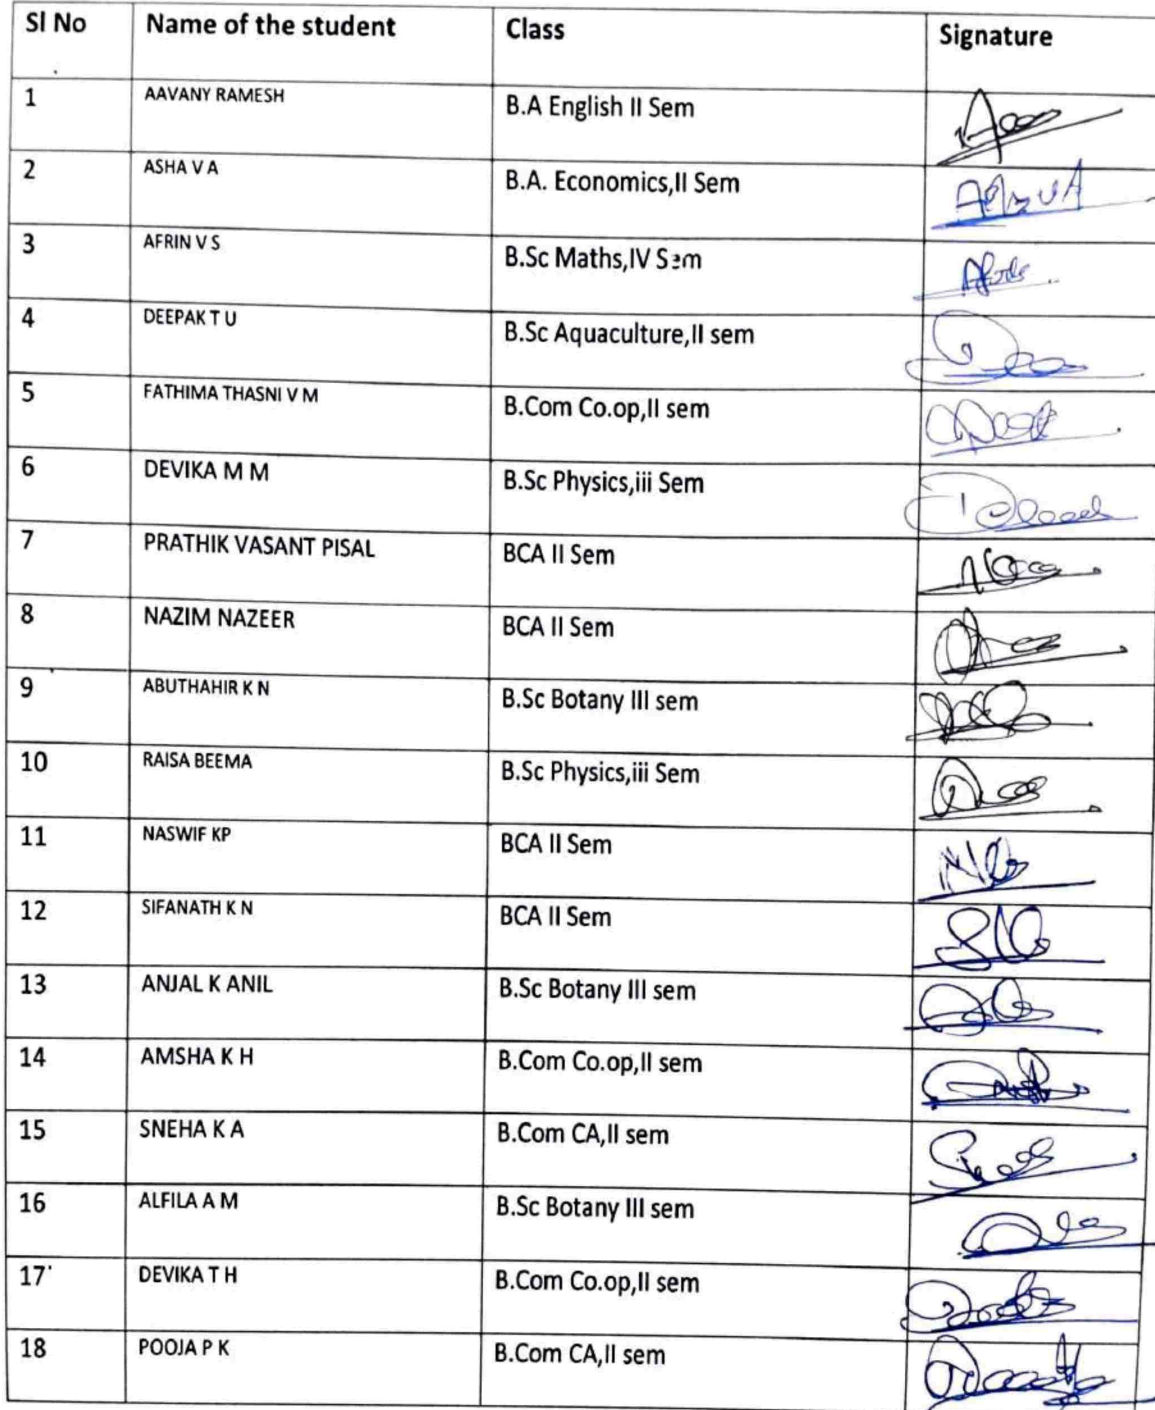 Sl No Name of the student Class Signature
1 AAVANY RAMESH B.A English II Sem
2 ASHA V A B.A. Economics,II Sem
3 AFRIN V S B.Sc Maths,IV Sem
4 DEEPAK T U B.Sc Aquaculture,II sem
5 FATHIMA THASNI V M B.Com Co.op,II sem
6 DEVIKA M M B.Sc Physics,iii Sem
7 PRATHIK VASANT PISAL BCA II Sem
8 NAZIM NAZEER BCA II Sem
9 ABUTHAHIR K N B.Sc Botany III sem
10 RAISA BEEMA B.Sc Physics,iii Sem
11 NASWIF KP BCA II Sem
12 SIFANATH K N BCA II Sem
13 ANJAL K ANIL B.Sc Botany III sem
14 AMSHA K H B.Com Co.op,II sem
15 SNEHA K A B.Com CA,II sem
16 ALFILA A M B.Sc Botany III sem
17 DEVIKA T H B.Com Co.op,II sem
18 POOJA P K B.Com CA,II sem